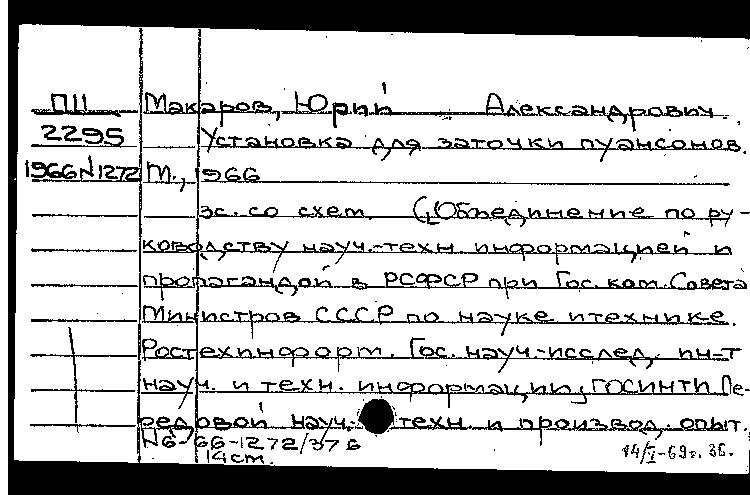 П11 Макаров, Юрий Александрович.
2295 Установка для заточки пуансонов.
1966 N1272 М., 1966
3с. со схем. (Объединение по ру-
ководству науч.-техн. информацией и
пропагандой в РСФСР при Гос. ком. Совета
Министров СССР по науке и технике.
Ростехинформ. Гос. науч.-исслед. ин-т
науч. и техн. информации, ГОСИНТИ Пе-
редовой науч.- техн. и производ. опыт.
N6-66-1272/376
14cm. 14/I-69г. 36.